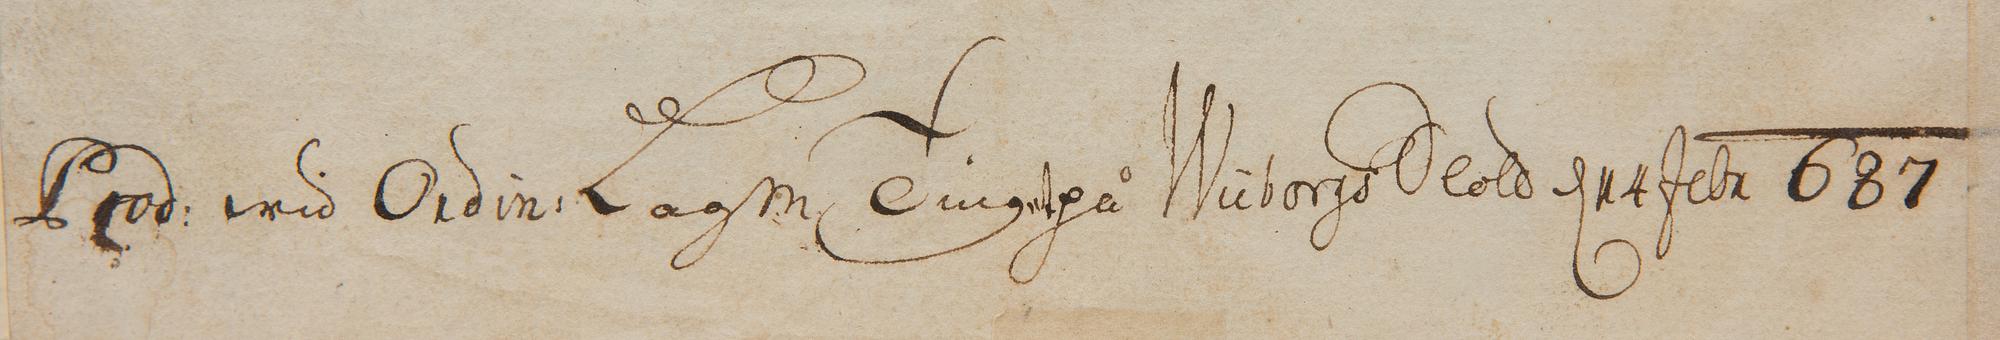 Prod: wid Ordin: LagM Tinget på Wiiborgs Slott d 14 Febr 687